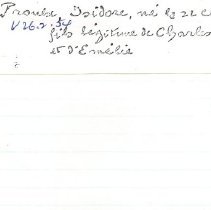 Proulx Isidore, né le 22
V 26.2.54
fils légitime de Charles
et d'Emélie